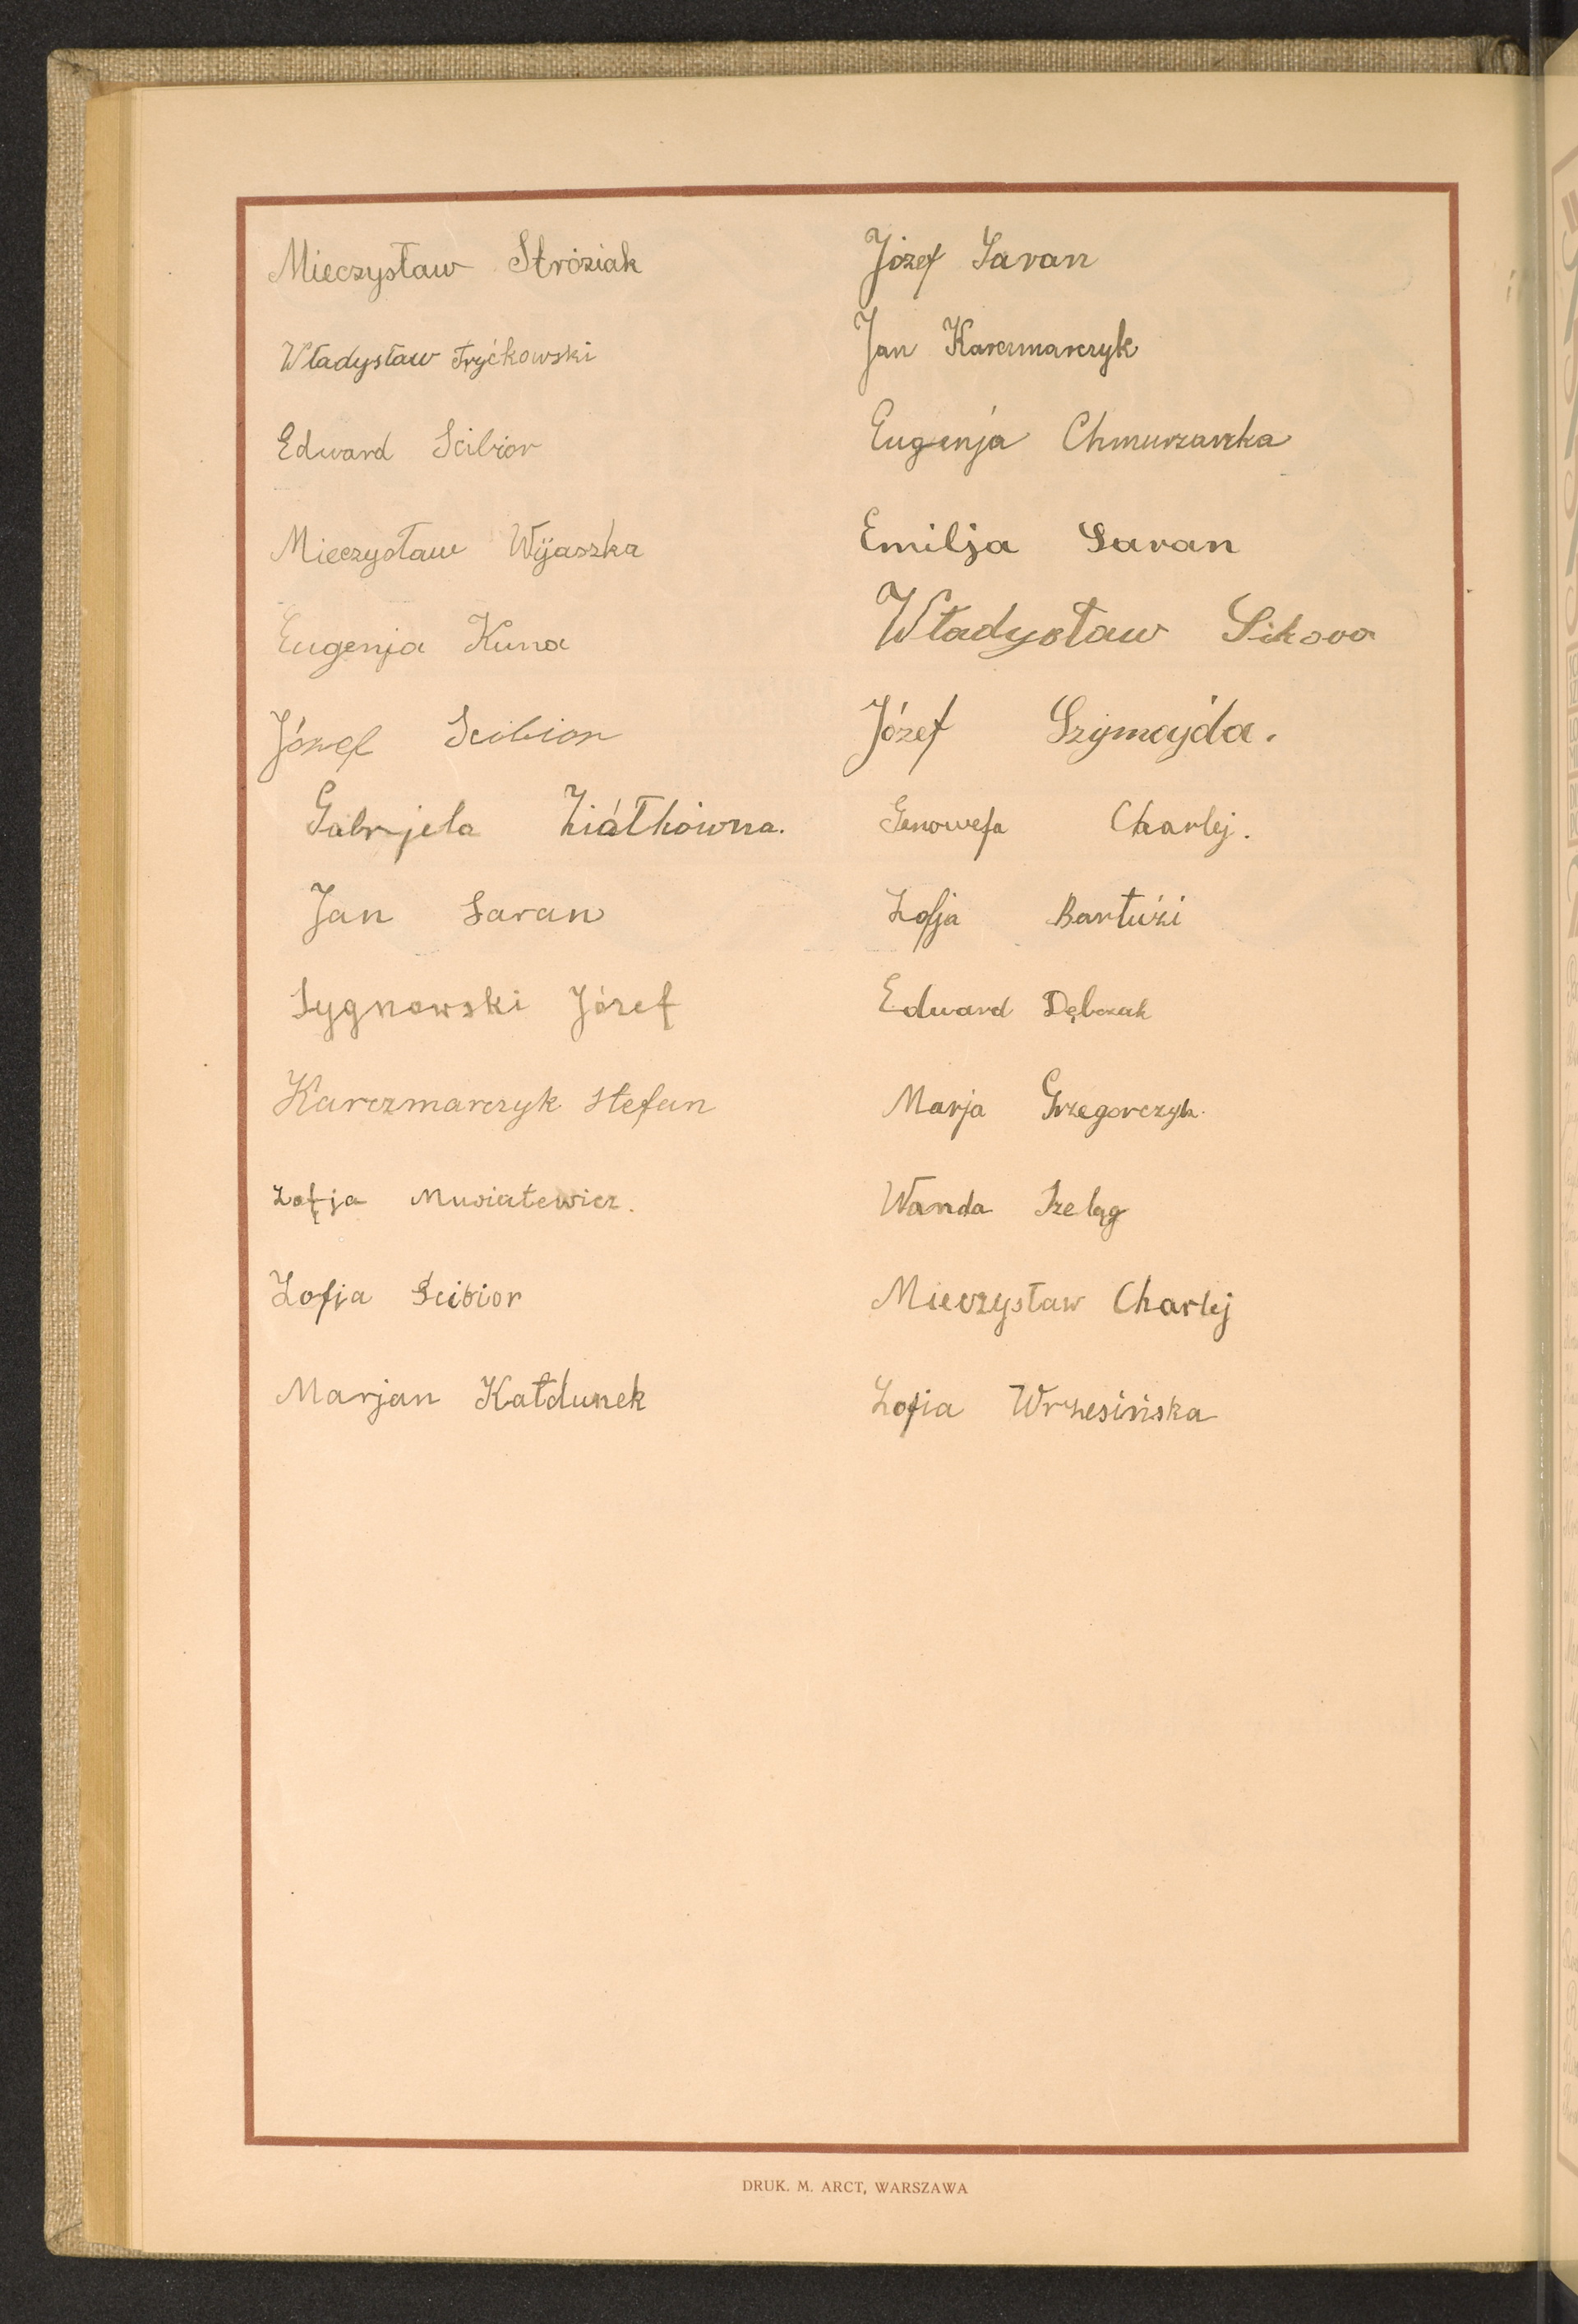 Mieczysław Stróziak
Władysław Tryćkowski
Edward Scibior
Mieczysław Wijaszka
Eugenja Kuna
Józef Scibior
Gabrjela Ziáłkówna.
Jan Saran
Sygnowski Józef
Karczmarczyk Stefan
Zofja Musiatewicz.
Zofja Scibior
Marjan Kałdunek
Józef Saran
Jan Karczmarczyk
Eugenja Chmurzanka
Emilja Saran
Władysław Sikora
Józef Szymajda.
Genowefa Charlej.
Zofja Bartuzi
Edward Dębczak
Marja Grzegorczyk.
Wanda Szeląg
Mieczysław Charlej
Zofia Wrzesińska
DRUK. M. ARCT, WARSZAWA